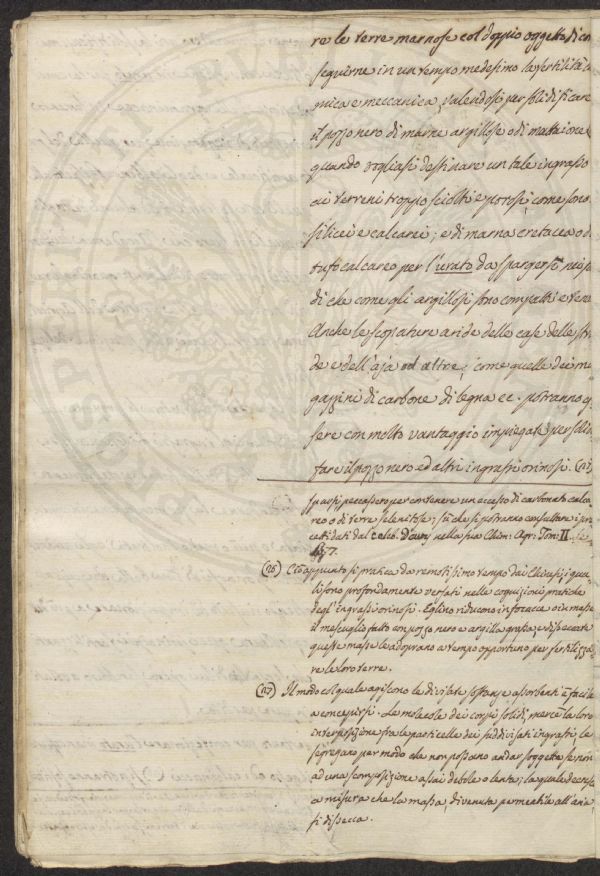 re le terre marnose col doppio oggetto di con
seguirne in un tempo medesimo la fertilità
mica e meccanica, valendosi per solidificare
il pozzo nero di marne argillose o di mattaione
quando vogliasi destinare un tale ingrasso
ai terreni troppo sciolti e porosi, come sono
silicei e calcarei; e di marna cretacea o di
tufo calcareo per l'urato da spargersi nei po
di che come gli argillosi sono compatti e tena
Anche le scopature aride delle case delle stra
de e dell'aja ed altre, come quelle dei ma
gazzini di carbone di legna ec. potranno es
sere con molto vantaggio impiegate per solidi
fare il pozzo nero ed altri ingrassi orinosi. (27)
sparsi peccassero per contenere un eccesso di carbonato calca
reo o di terre selenitose; su che si potranno consultare i pre
cetti dati dal celeb. Davy nella sua Chim: Agr: Tom: II
157.
(26) Ciò appunto si pratica da remotissimo tempo dai Chinesi, i qua
li sono profondamente versati nelle cognizioni pratiche
degl'ingrassi orinosi. Eglino riducono in focacce o in masse
il mescuglio fatto con pozzo nero e argilla grassa, e disseccate
queste masse le adoprano a tempo opportuno per fertilizza
re le loro terre.
(27) Il modo col quale agiscono le divisate sostanze assorbenti è facile
a concepirsi. Le molecole dei corpi solidi, mercè la loro
interposizione fra le particelle dei suddivisati ingrassi, le
separano per modo che non possano andar soggette se non
ad una scomposizione assai debole o lenta; la quale decresce
a misura che la massa, divenuta permeabile all'aria
si dissecca.